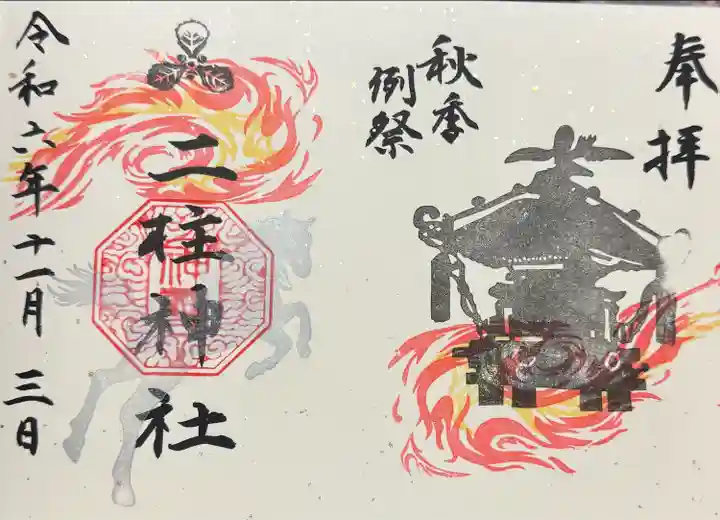 奉拝
秋季
例祭
二柱神社
令和六年十一月三日